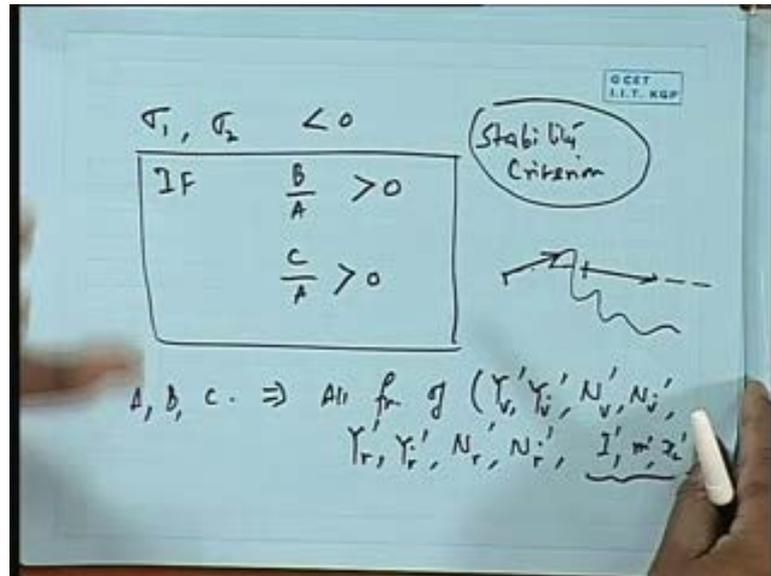 © CET
I.I.T. KGP
σ₁, σ₂ < 0
Stability
Criterion
IF B/A > 0
C/A > 0
A, B, C. ⇒ All fn. of (Yv', Yv̇', Nv', Nv̇',
Yr', Yṙ', Nr', Nṙ', I', m', xG'